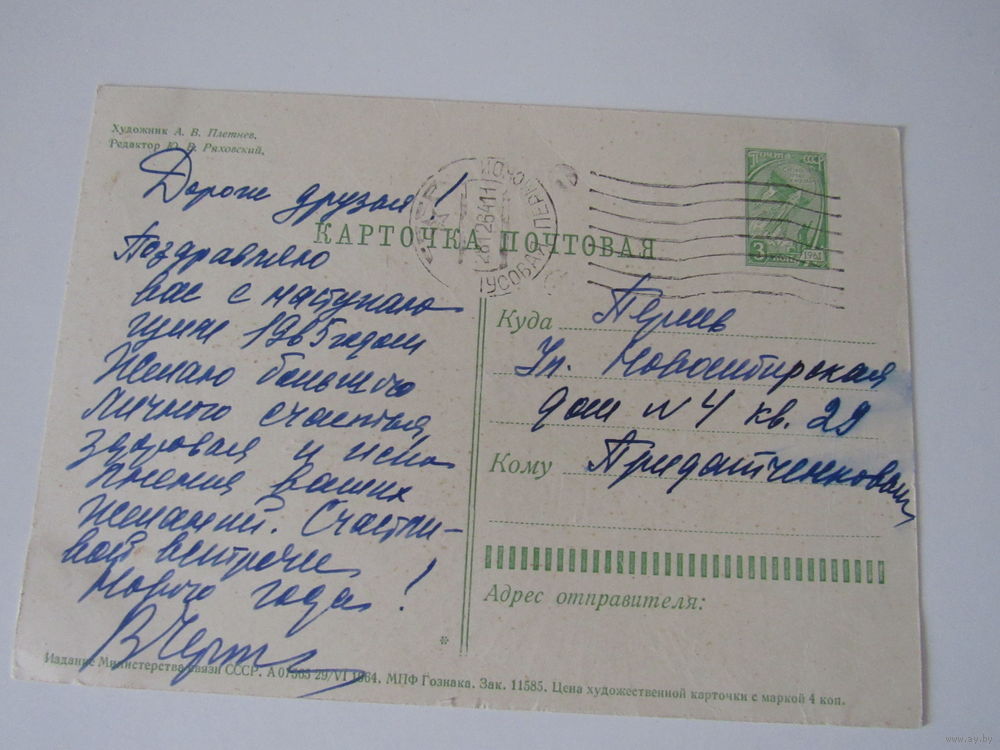 Художник А. В. Плетнев.
Редактор Ю. В. Ряховский.
Дороги друзья!
Поздравляю
вас с наступаю
щим 1965 годом
Желаю большого
личного счастья
здоровья и испо
лнения ваших
желаний. Счастли-
вой встречи
Нового года!
КАРТОЧКА ПОЧТОВАЯ
Почта СССР
3 коп
1961
Куда Пермь
Ул. Новосибирская
дом N 4 кв. 29
Кому Придатченковым
Адрес отправителя:
*
Издание Министерства связи СССР. А 07565 29/VI 1964. МПФ Гознака. Зак. 11585. Цена художественной карточки с маркой 4 коп.
www.ay.by